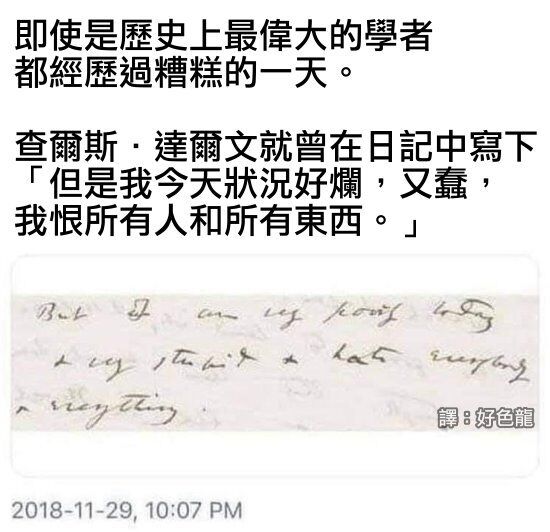 即使是歷史上最偉大的學者
都經歷過糟糕的一天。
查爾斯．達爾文就曾在日記中寫下
「但是我今天狀況好爛，又蠢，
我恨所有人和所有東西。」
But I am very poorly today
& very stupid & hate everybody
& everything.
譯：好色龍
2018-11-29, 10:07 PM